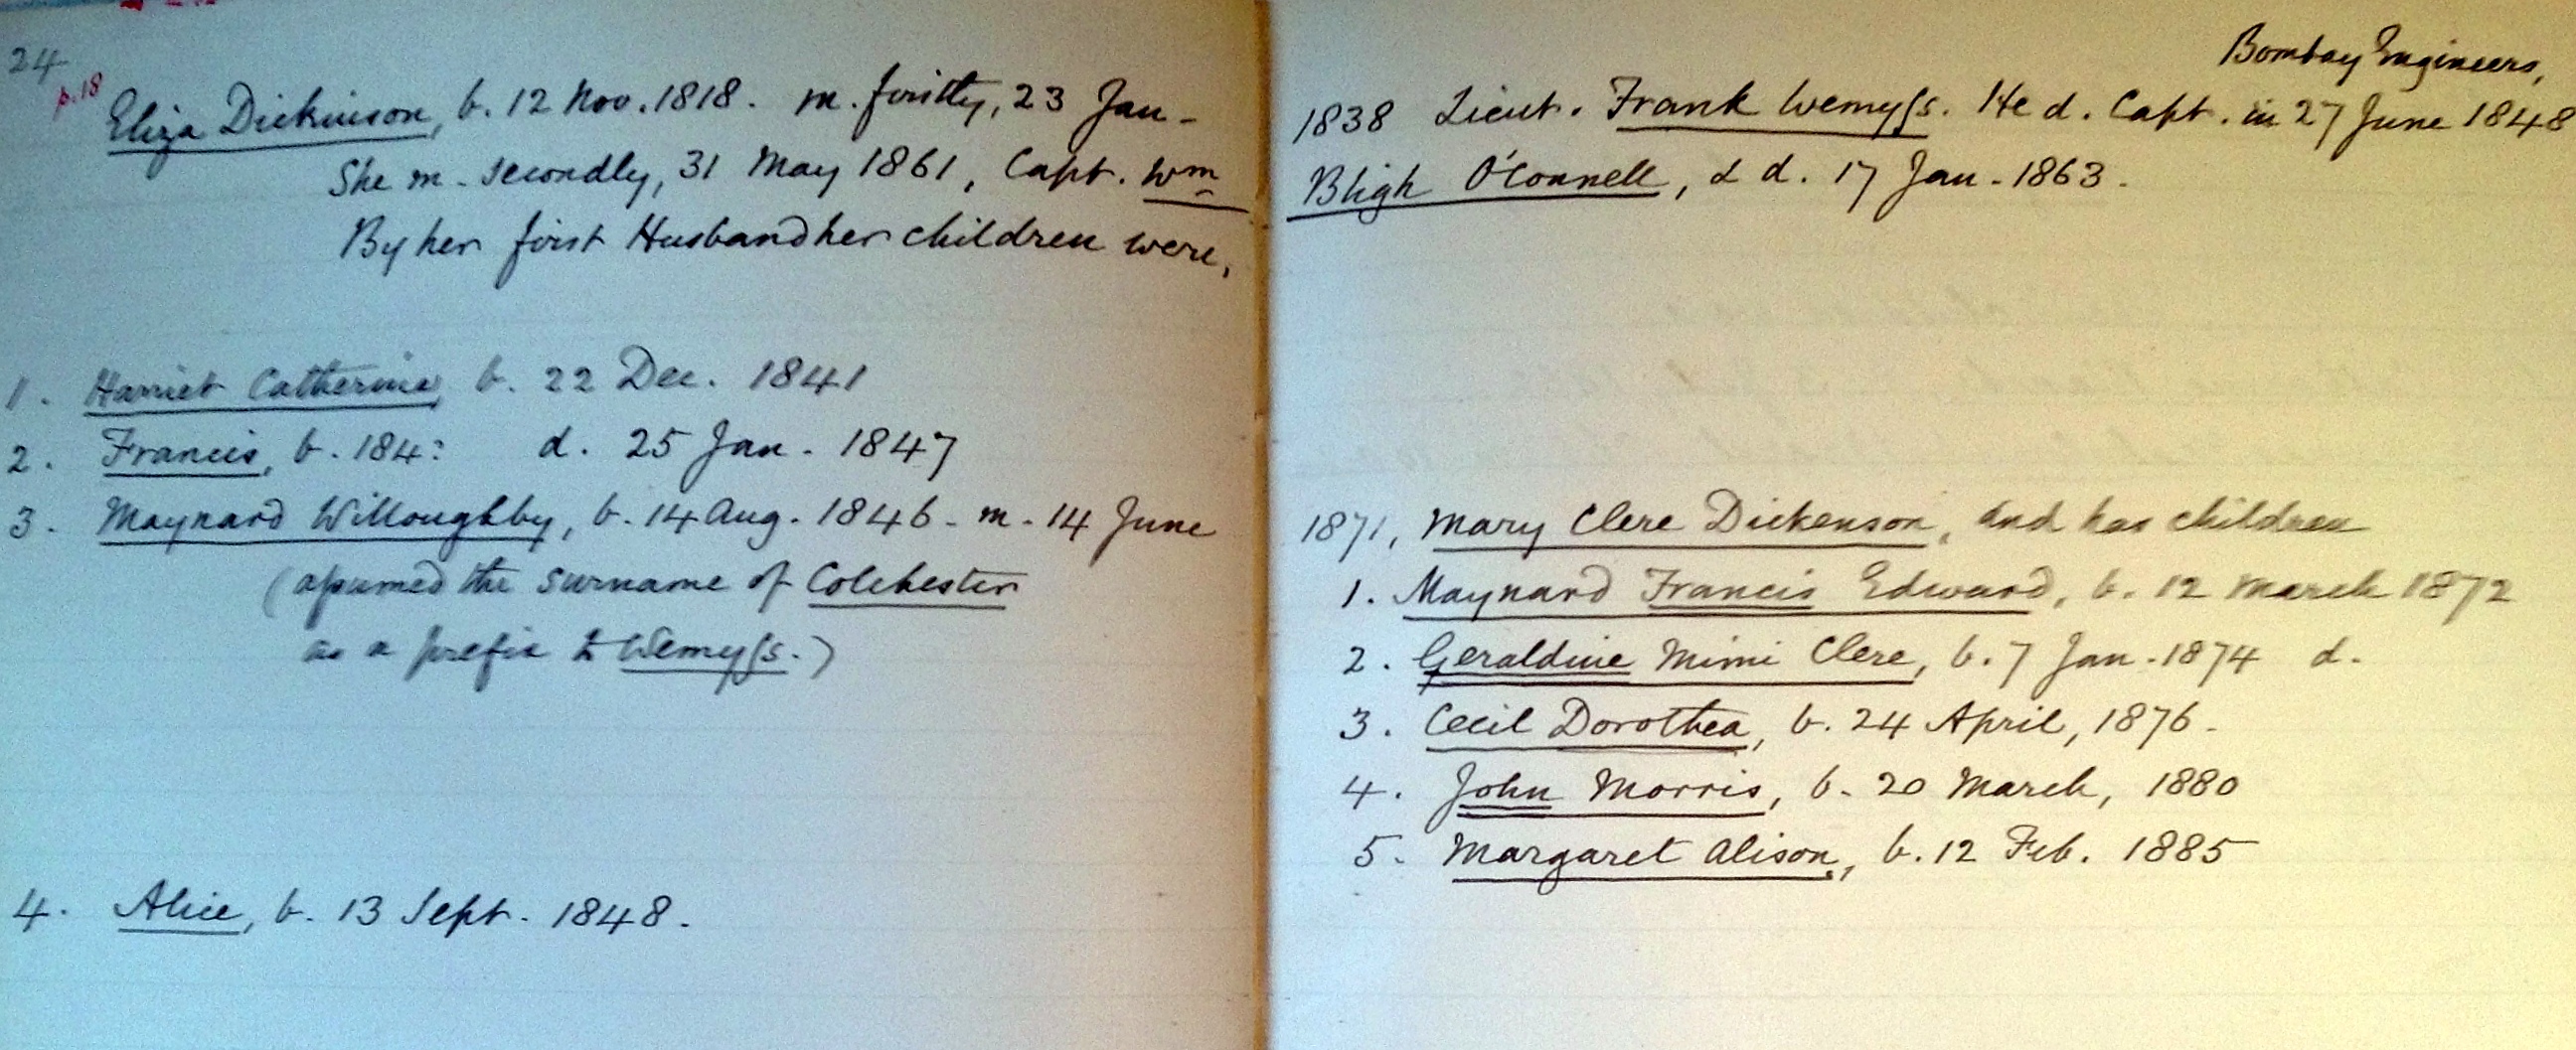 24
p.18
Eliza Dickinson, b. 12 Nov. 1818. m. firstly, 23 Jan-
She m. secondly, 31 May 1861, Capt. Wm
By her first Husband her children were,
1. Harriet Catherine, b. 22 Dec. 1841
2. Francis, b. 184? d. 25 Jan. 1847
3. Maynard Willoughby, b. 14 Aug. 1846 - m. 14 June
(assumed the surname of Colchester
as a prefix to Wemyss.)
4. Alice, b. 13 Sept. 1848.
Bombay Engineers,
1838 Lieut. Frank Wemyss. He d. Capt. in 27 June 1848
Bligh O'Connell, & d. 17 Jan. 1863.
1871, Mary Clere Dickenson, and has children
1. Maynard Francis Edward, b. 12 March 1872
2. Geraldine Mimi Clere, b. 7 Jan. 1874 d.
3. Cecil Dorothea, b. 24 April, 1876.
4. John Morris, b. 20 March, 1880
5. Margaret Alison, b. 12 Feb. 1885